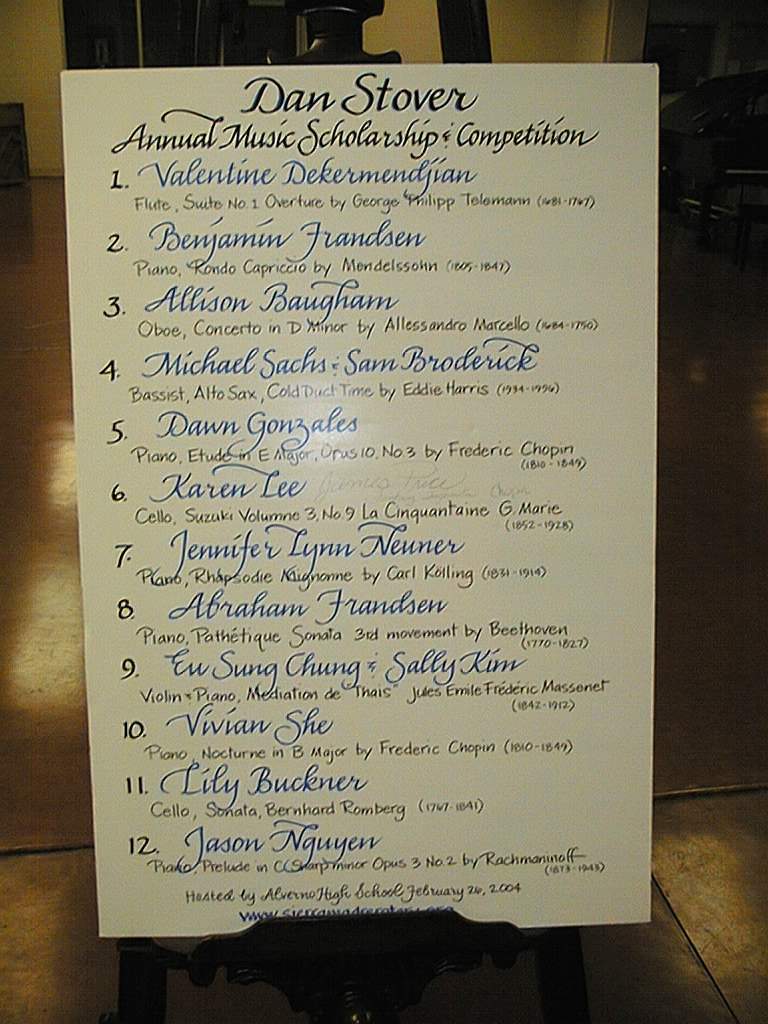 Dan Stover
Annual Music Scholarship & Competition
1. Valentine Dekermendjian
Flute, Suite No. 1 Overture by George Philipp Telemann (1681-1767)
2. Benjamin Frandsen
Piano, Rondo Capriccio by Mendelssohn (1805-1847)
3. Allison Baugham
Oboe, Concerto in D Minor by Allessandro Marcello (1684-1750)
4. Michael Sachs & Sam Broderick
Bassist, Alto Sax, Cold Duct Time by Eddie Harris (1934-1996)
5. Dawn Gonzales
Piano, Etude in E Major, Opus 10, No. 3 by Frederic Chopin
(1810-1849)
6. Karen Lee James Price
Cello, Suzuki Volumne 3, No. 9 La Cinquantaine G. Marie
(1852-1928)
7. Jennifer Lynn Neuner
Piano, Rhapsodie Mignonne by Carl Kölling (1831-1914)
8. Abraham Frandsen
Piano, Pathétique Sonata 3rd movement by Beethoven
(1770-1827)
9. Eu Sung Chung & Sally Kim
Violin & Piano, Mediation de "Thais" Jules Emile Frédéric Massenet
(1842-1912)
10. Vivian She
Piano, Nocturne in B Major by Frederic Chopin (1810-1849)
11. Lily Buckner
Cello, Sonata, Bernhard Romberg (1767-1841)
12. Jason Nguyen
Piano, Prelude in C Sharp minor Opus 3 No. 2 by Rachmaninoff
(1873-1943)
Hosted by Alverno High School February 26, 2004
www.sierramadrerotary.org